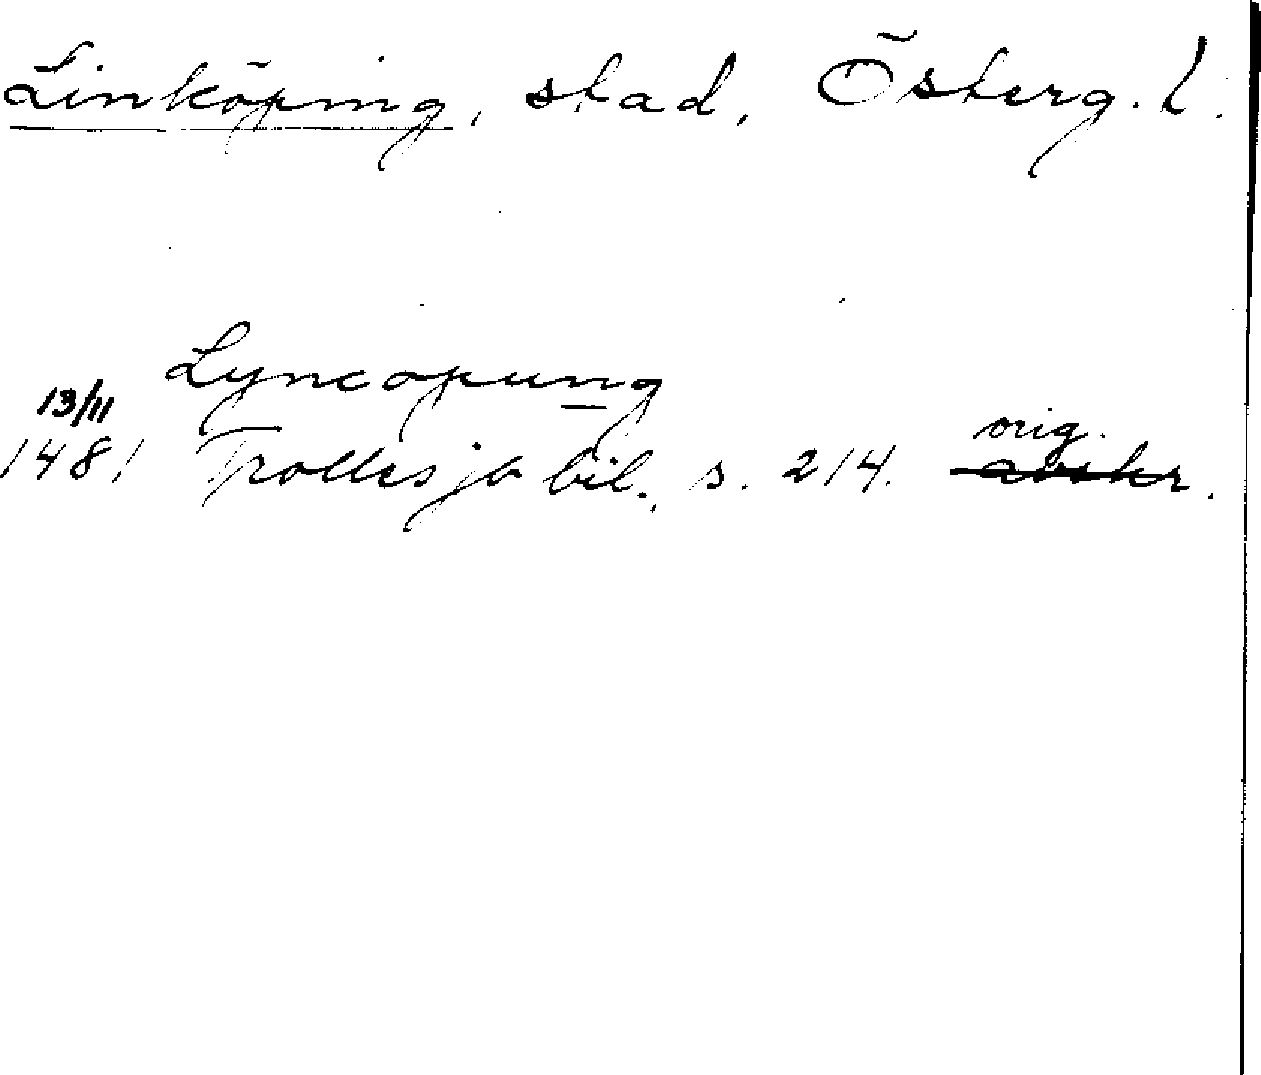 Linköping, stad, Österg. l.
Lyncopung
13/11
1481 Trolles jb bil., s. 214. orig. avskr.